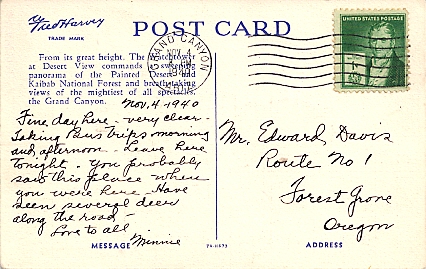 by
Fred Harvey
TRADE MARK
POST CARD
From its great height. The Watchtower
at Desert View commands a sweeping
panorama of the Painted Desert and
Kaibab National Forest and breath-taking
views of the mightiest of all spectacles,
the Grand Canyon.
GRAND CANYON
NOV 4
1940
ARIZ.
UNITED STATES POSTAGE
Nov. 4 1940
Fine day here - very clear.
Taking Bus trips morning
and afternoon. Leave here
tonight. You probably
saw this place when
you were here. Have
seen several deer
along the road -
Love to all
Minnie
MESSAGE
Mr. Edward Davis
Route No 1
Forest Grove
Oregon
ADDRESS